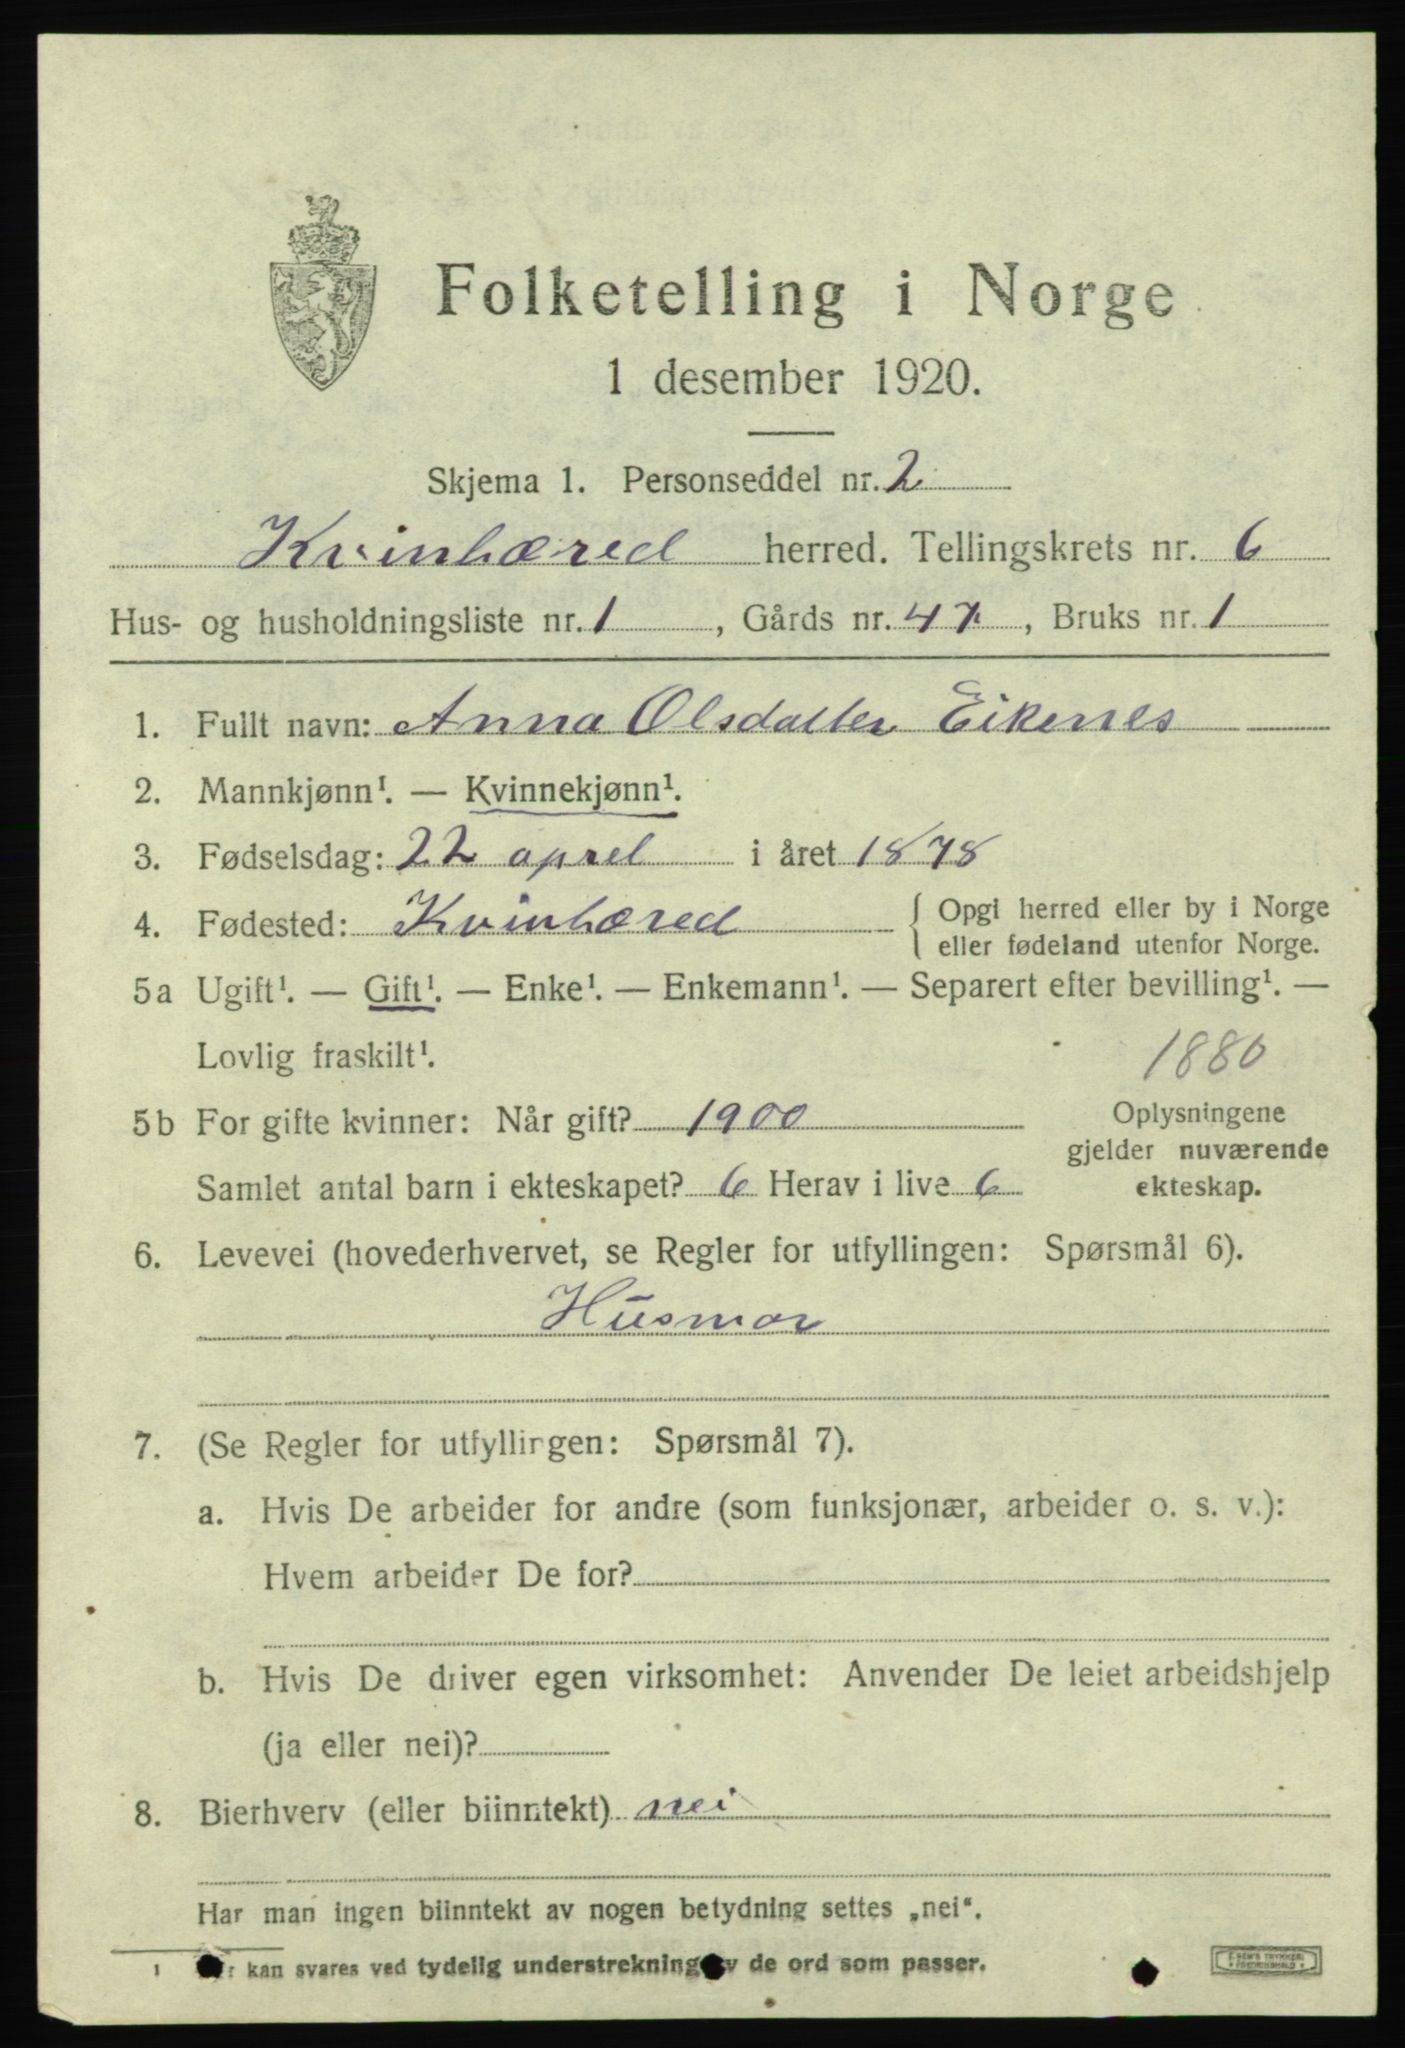 Folketelling i Norge
1 desember 1920.
Skjema 1. Personseddel nr. 2
Kvinhæred herred. Tellingskrets nr. 6
Hus- og husholdningsliste nr. 1, Gårds nr. 47, Bruks nr. 1
1. Fullt navn: Anna Olsdatter Eikenes
2. Mannkjønn¹. — Kvinnekjønn¹.
3. Fødselsdag: 22 aprel i året 1878
4. Fødested: Kvinhæred { Opgi herred eller by i Norge
eller fødeland utenfor Norge.
5a Ugift¹. — Gift¹. — Enke¹. — Enkemann¹. — Separert efter bevilling¹. —
Lovlig fraskilt¹.
1880
5b For gifte kvinner: Når gift? 1900
Samlet antal barn i ekteskapet? 6 Herav i live 6
Oplysningene
gjelder nuværende
ekteskap.
6. Levevei (hovederhvervet, se Regler for utfyllingen: Spørsmål 6).
Husmor
7. (Se Regler for utfyllingen: Spørsmål 7).
a. Hvis De arbeider for andre (som funksjonær, arbeider o. s. v.):
Hvem arbeider De for?
b. Hvis De driver egen virksomhet: Anvender De leiet arbeidshjelp
(ja eller nei)?
8. Bierhverv (eller biinntekt) nei
Har man ingen biinntekt av nogen betydning settes „nei“.
¹ kan svares ved tydelig understrekning av de ord som passer.